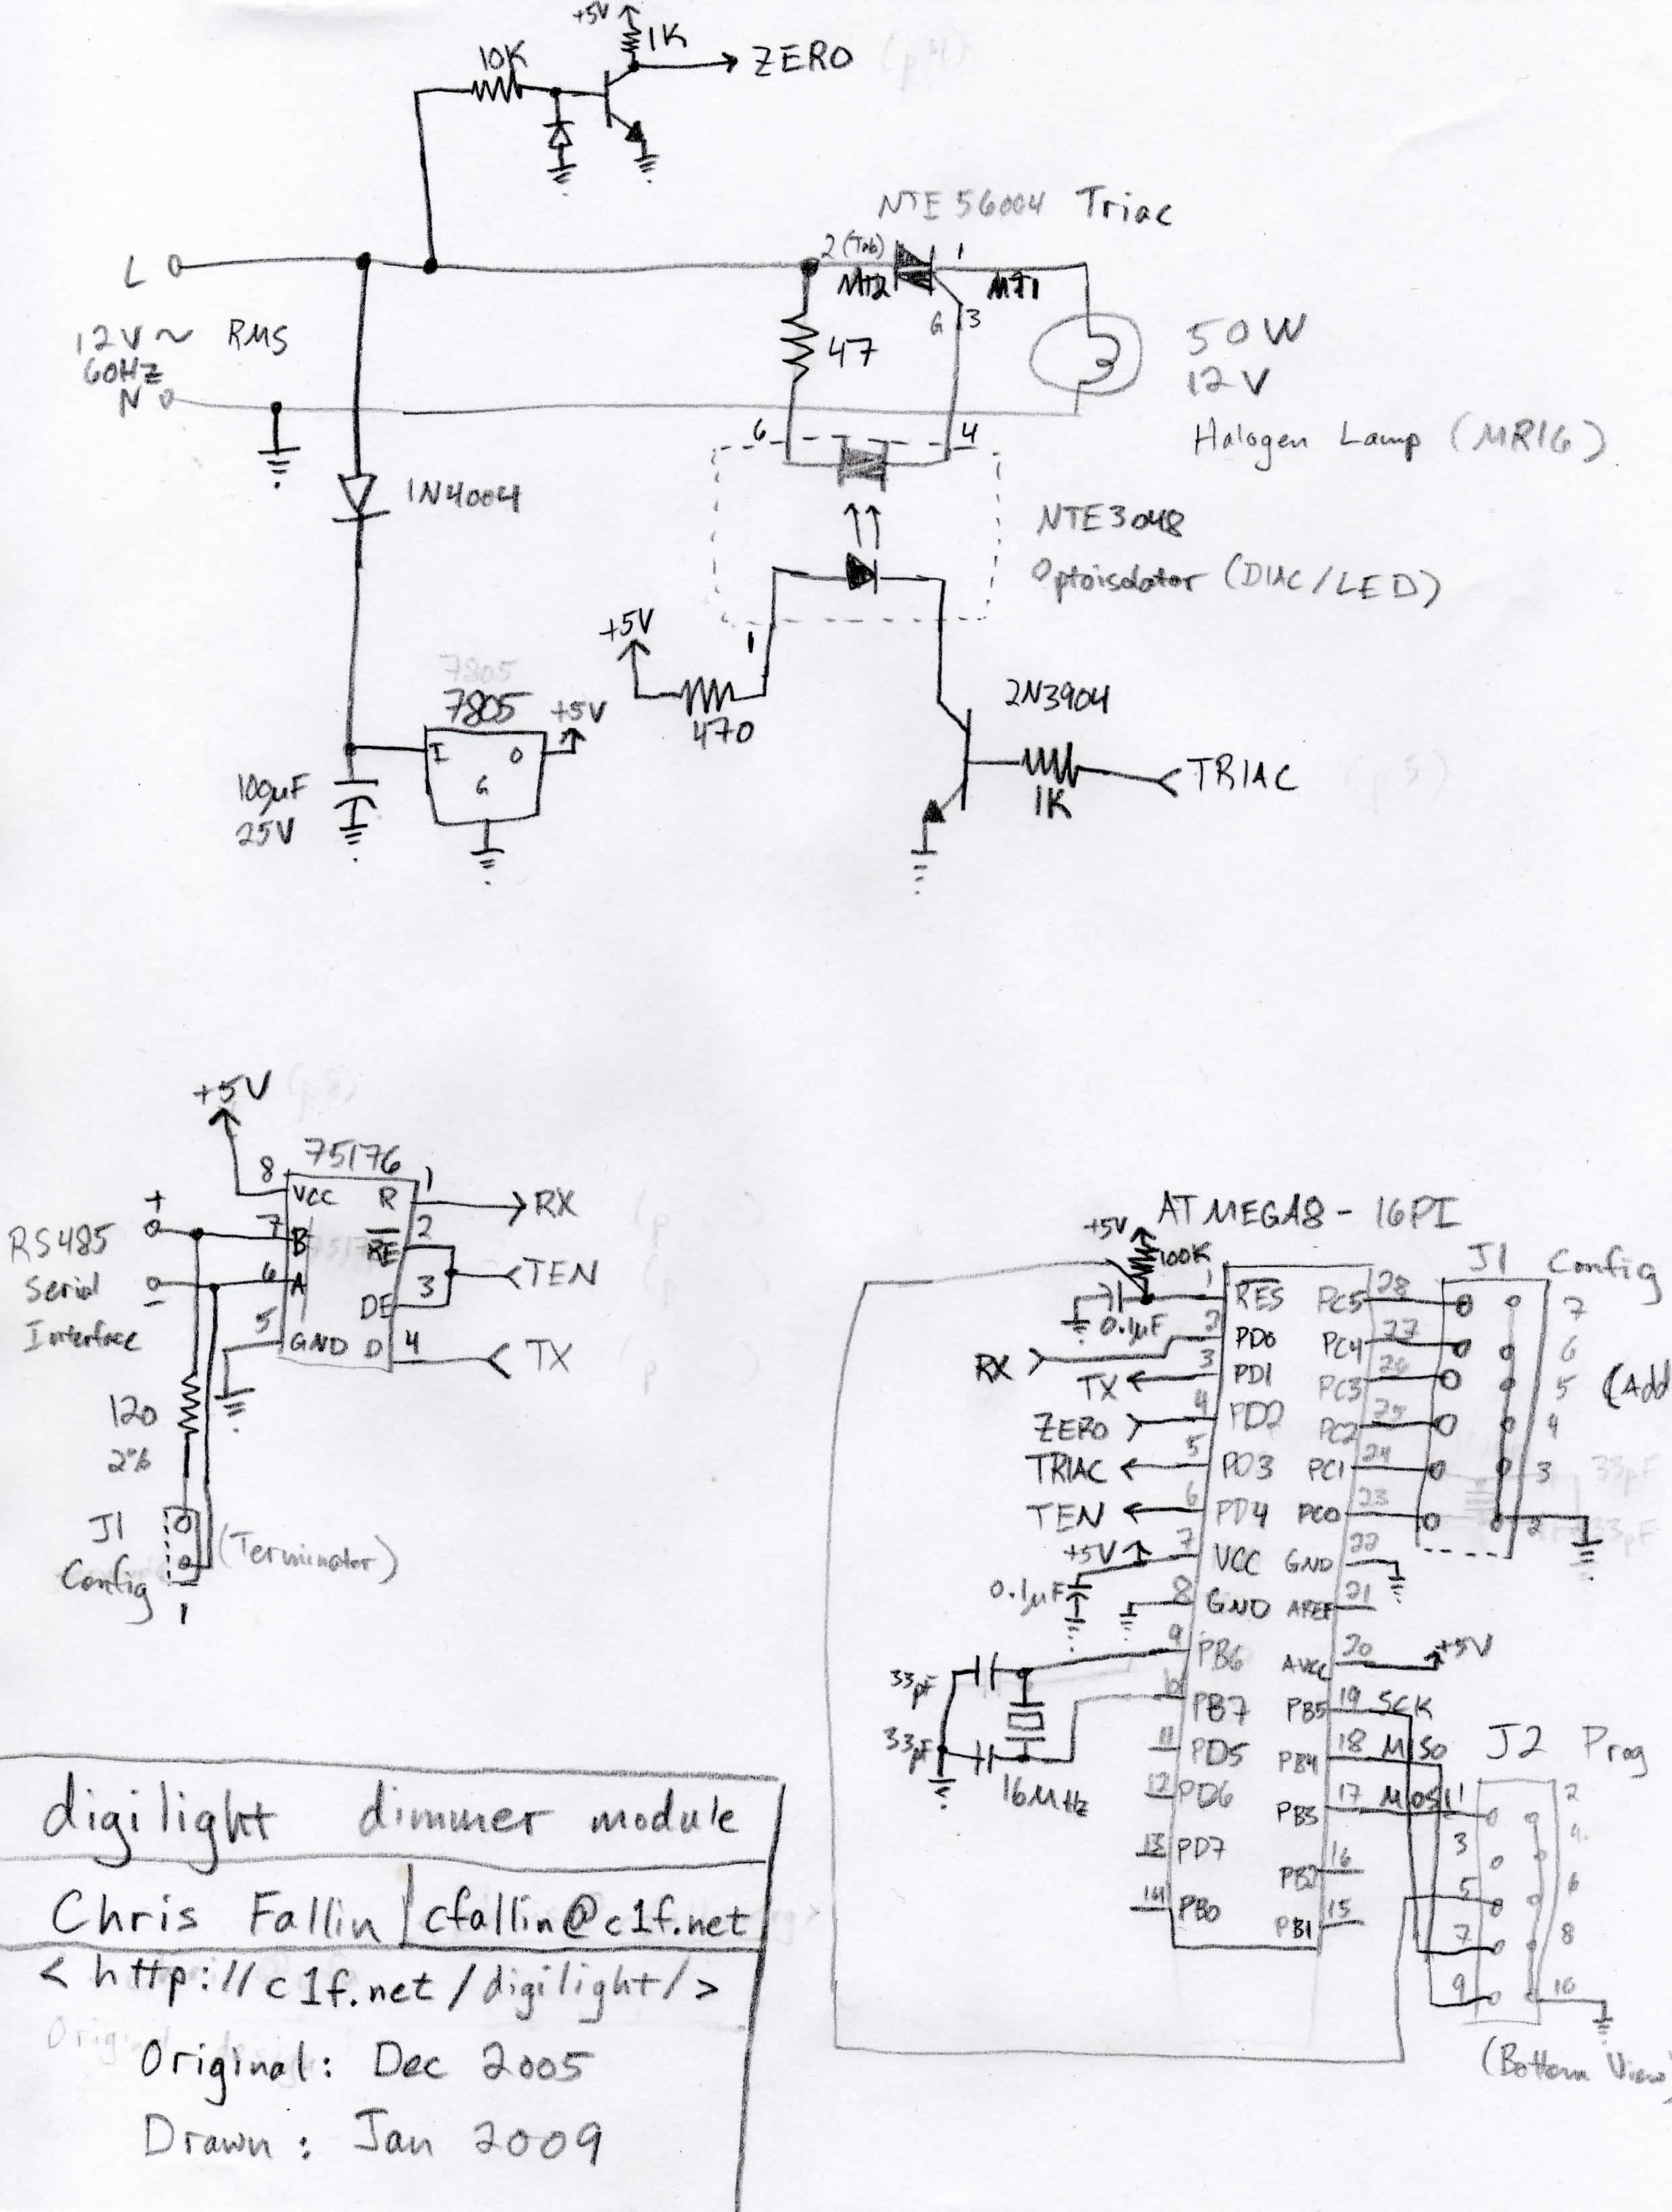 +5V
1K
10K
ZERO (p4)
NTE 56004 Triac
2 (Tab)
1
L
MT2
MT1
G
3
47
12V ~ RMS
60HZ
N
50W
12V
Halogen Lamp (MR16)
6
4
1N4004
NTE3048
Optoisolator (DIAC/LED)
+5V
1
7805
7805
+5V
470
2N3904
I
O
G
100µF
25V
TRIAC (p5)
1K
+5V (p8)
75176
8
VCC
R
1
RX
+
RS485
Serial
Interface
-
7
B
RE
2
6
A
3
TEN
DE
5
GND
D
4
TX
120
2%
J1
Config
(Terminator)
1
ATMEGA8-16PI
+5V
100K
0.1µF
J1 Config
1
RES
PC5
28
7
2
PD0
PC4
27
6
RX
3
PD1
PC3
26
5
(Add
TX
4
PD2
PC2
25
4
ZERO
5
PD3
PC1
24
3
33pF
TRIAC
6
PD4
PC0
23
2
33pF
TEN
7
VCC
GND
22
+5V
0.1µF
8
GND
AREF
21
9
PB6
AVCC
20
+5V
33pF
10
PB7
PB5
19 SCK
33pF
11
PD5
PB4
18 MISO
J2 Prog
16MHz
12
PD6
PB3
17 MOSI
1
2
13
PD7
3
4
PB2
16
14
PB0
5
6
PB1
15
7
8
9
10
(Bottom View)
digilight dimmer module
Chris Fallin
cfallin@c1f.net
<http://c1f.net/digilight/>
Original: Dec 2005
Drawn: Jan 2009